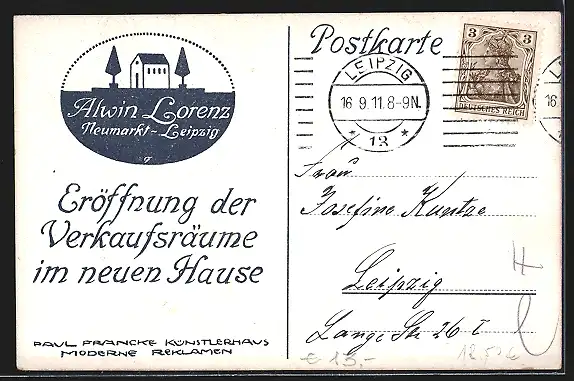 Alwin Lorenz
Neumarkt-Leipzig
Eröffnung der
Verkaufsräume
im neuen Hause
PAUL FRANCKE KÜNSTLERHAUS
MODERNE REKLAMEN
Postkarte
3 3
DEUTSCHES REICH
LEIPZIG
16 9.11.8-9N.
* 13 *
16
Frau
Josefine Kuntze
Leipzig
Lange Str. 26 I
€ 13,-